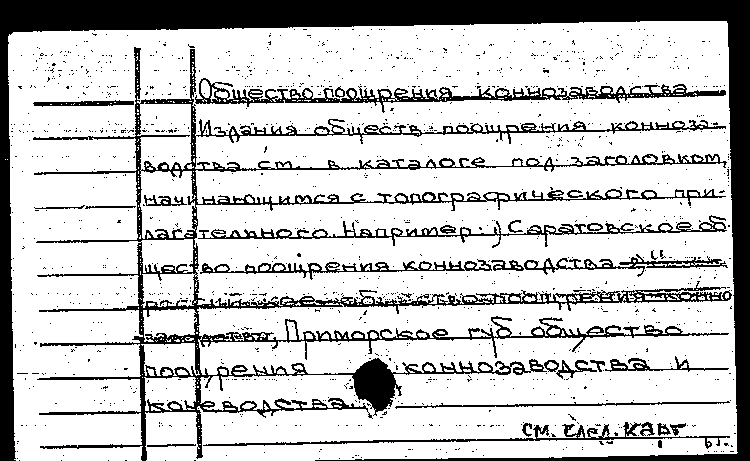 Общество поощрения коннозаводства
Издания обществ поощрения конноза-
водства см. в каталоге под заголовком,
начинающимся с топографического при-
лагательного. Например: 1) Саратовское об
щество поощрения коннозаводства 2) "
российское общество поощрения конно
заводства, Приморское губ. общество
поощрения коннозаводства и
коневодства.
см. след. карт